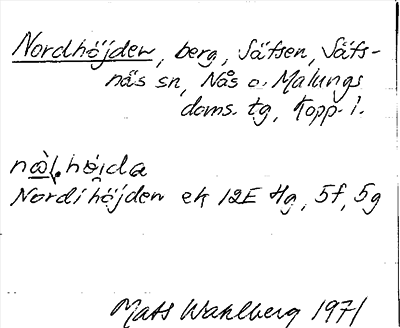 Nordhöjden, berg, Sätsen, Säfs-
näs sn, Nås o. Malungs
doms. tg, Kopp. l.
Nordihöjden ek 12E Hg, 5f, 5g
Mats Wahlberg 1971